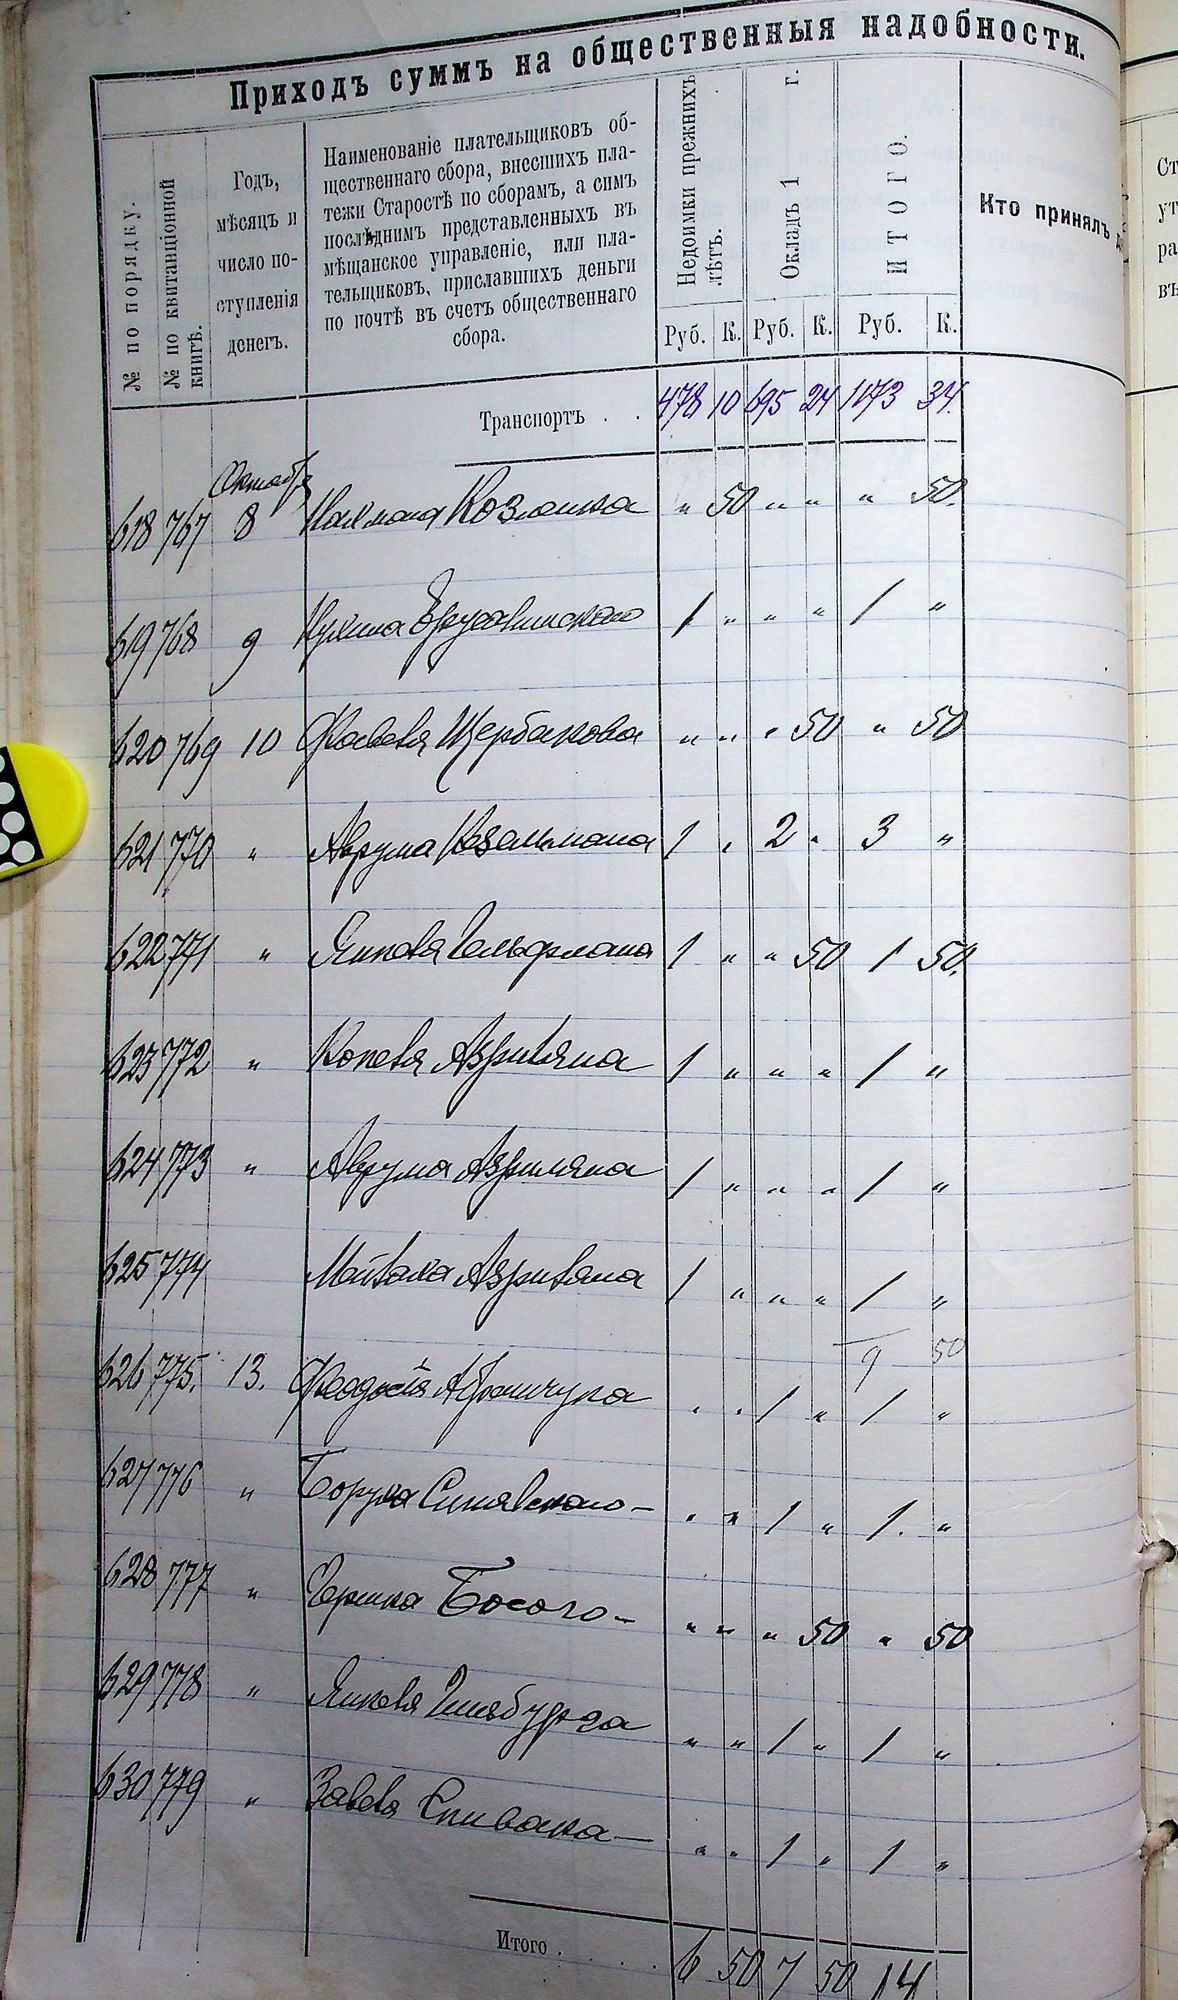 Приходъ суммъ на общественныя надобности.
№ по порядку.
№ по квитанціонной
книгѣ.
Годъ,
мѣсяцъ и
число по-
ступленія
денегъ.
Наименованіе плательщиковъ об-
щественнаго сбора, внесшихъ пла-
тежи Старостѣ по сборамъ, а симъ
послѣднимъ представленныхъ въ
мѣщанское управленіе, или пла-
тельщиковъ, приславшихъ деньги
по почтѣ въ счетъ общественнаго
сбора.
Недоимки прежнихъ
лѣтъ.
Окладъ 1 г.
ИТОГО.
Кто принялъ
Руб. К. Руб. К. Руб. К.
Транспортъ . . 478 10 695 24 1173 34.
Октябр
618 767 8 Нахмана Козлика " 50 " " " 50.
619 768 9 1 " " " 1 "
620 769 10 Щербакова " " " 50 " 50
621 770 " Аврума Кезельмана 1 " 2 " 3 "
622 771 " Янкеля Гельфмана 1 " " 50 1 50.
623 772 " Копеля 1 " " " 1 "
624 773 " Аврума 1 " " " 1 "
625 774 1 " " " 1 "
9 50
626 775. 13. Феодосія " " 1 " 1 "
627 776 " Боруха Синявскаго — " " 1 " 1. "
628 777 " Гершка Босого — " " " 50 " 50
629 778 " Янкеля Гинзбурга " " 1 " 1 "
630 779 " Завеля Спивака — " " 1 " 1 "
Итого . . . . 6 50 7 50 14
Ст
ут
ра
въ